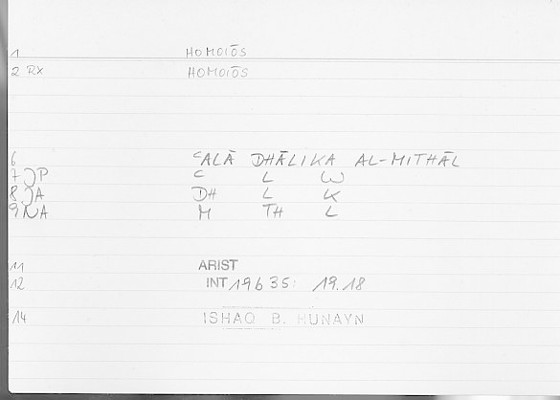 1 HOMOIŌS
2 RX HOMOIŌS
6 ʿALĀ DHĀLIKA AL-MITHĀL
7 JP ʿ L W
8 JA DH L K
9 NA M TH L
11 ARIST
12 INT 19b35: 19.18
14 ISHAQ B. HUNAYN